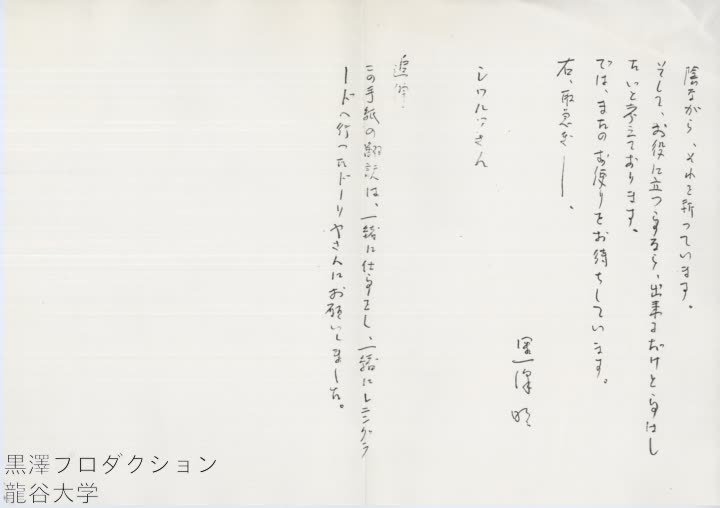 陰ながら、それを祈っています。
そして、お役に立つ事なら、出来るだけの事はし
たいと考えております。
では、またのお便りをお待ちしています。
右、取急ぎ──、
黒澤明
シワルツさん
追伸
この手紙の翻訳は、一緒に仕事をし、一緒にレニングラ
ードへ行ったドーリヤさんにお願いしました。
黒澤フロダクション
龍谷大学